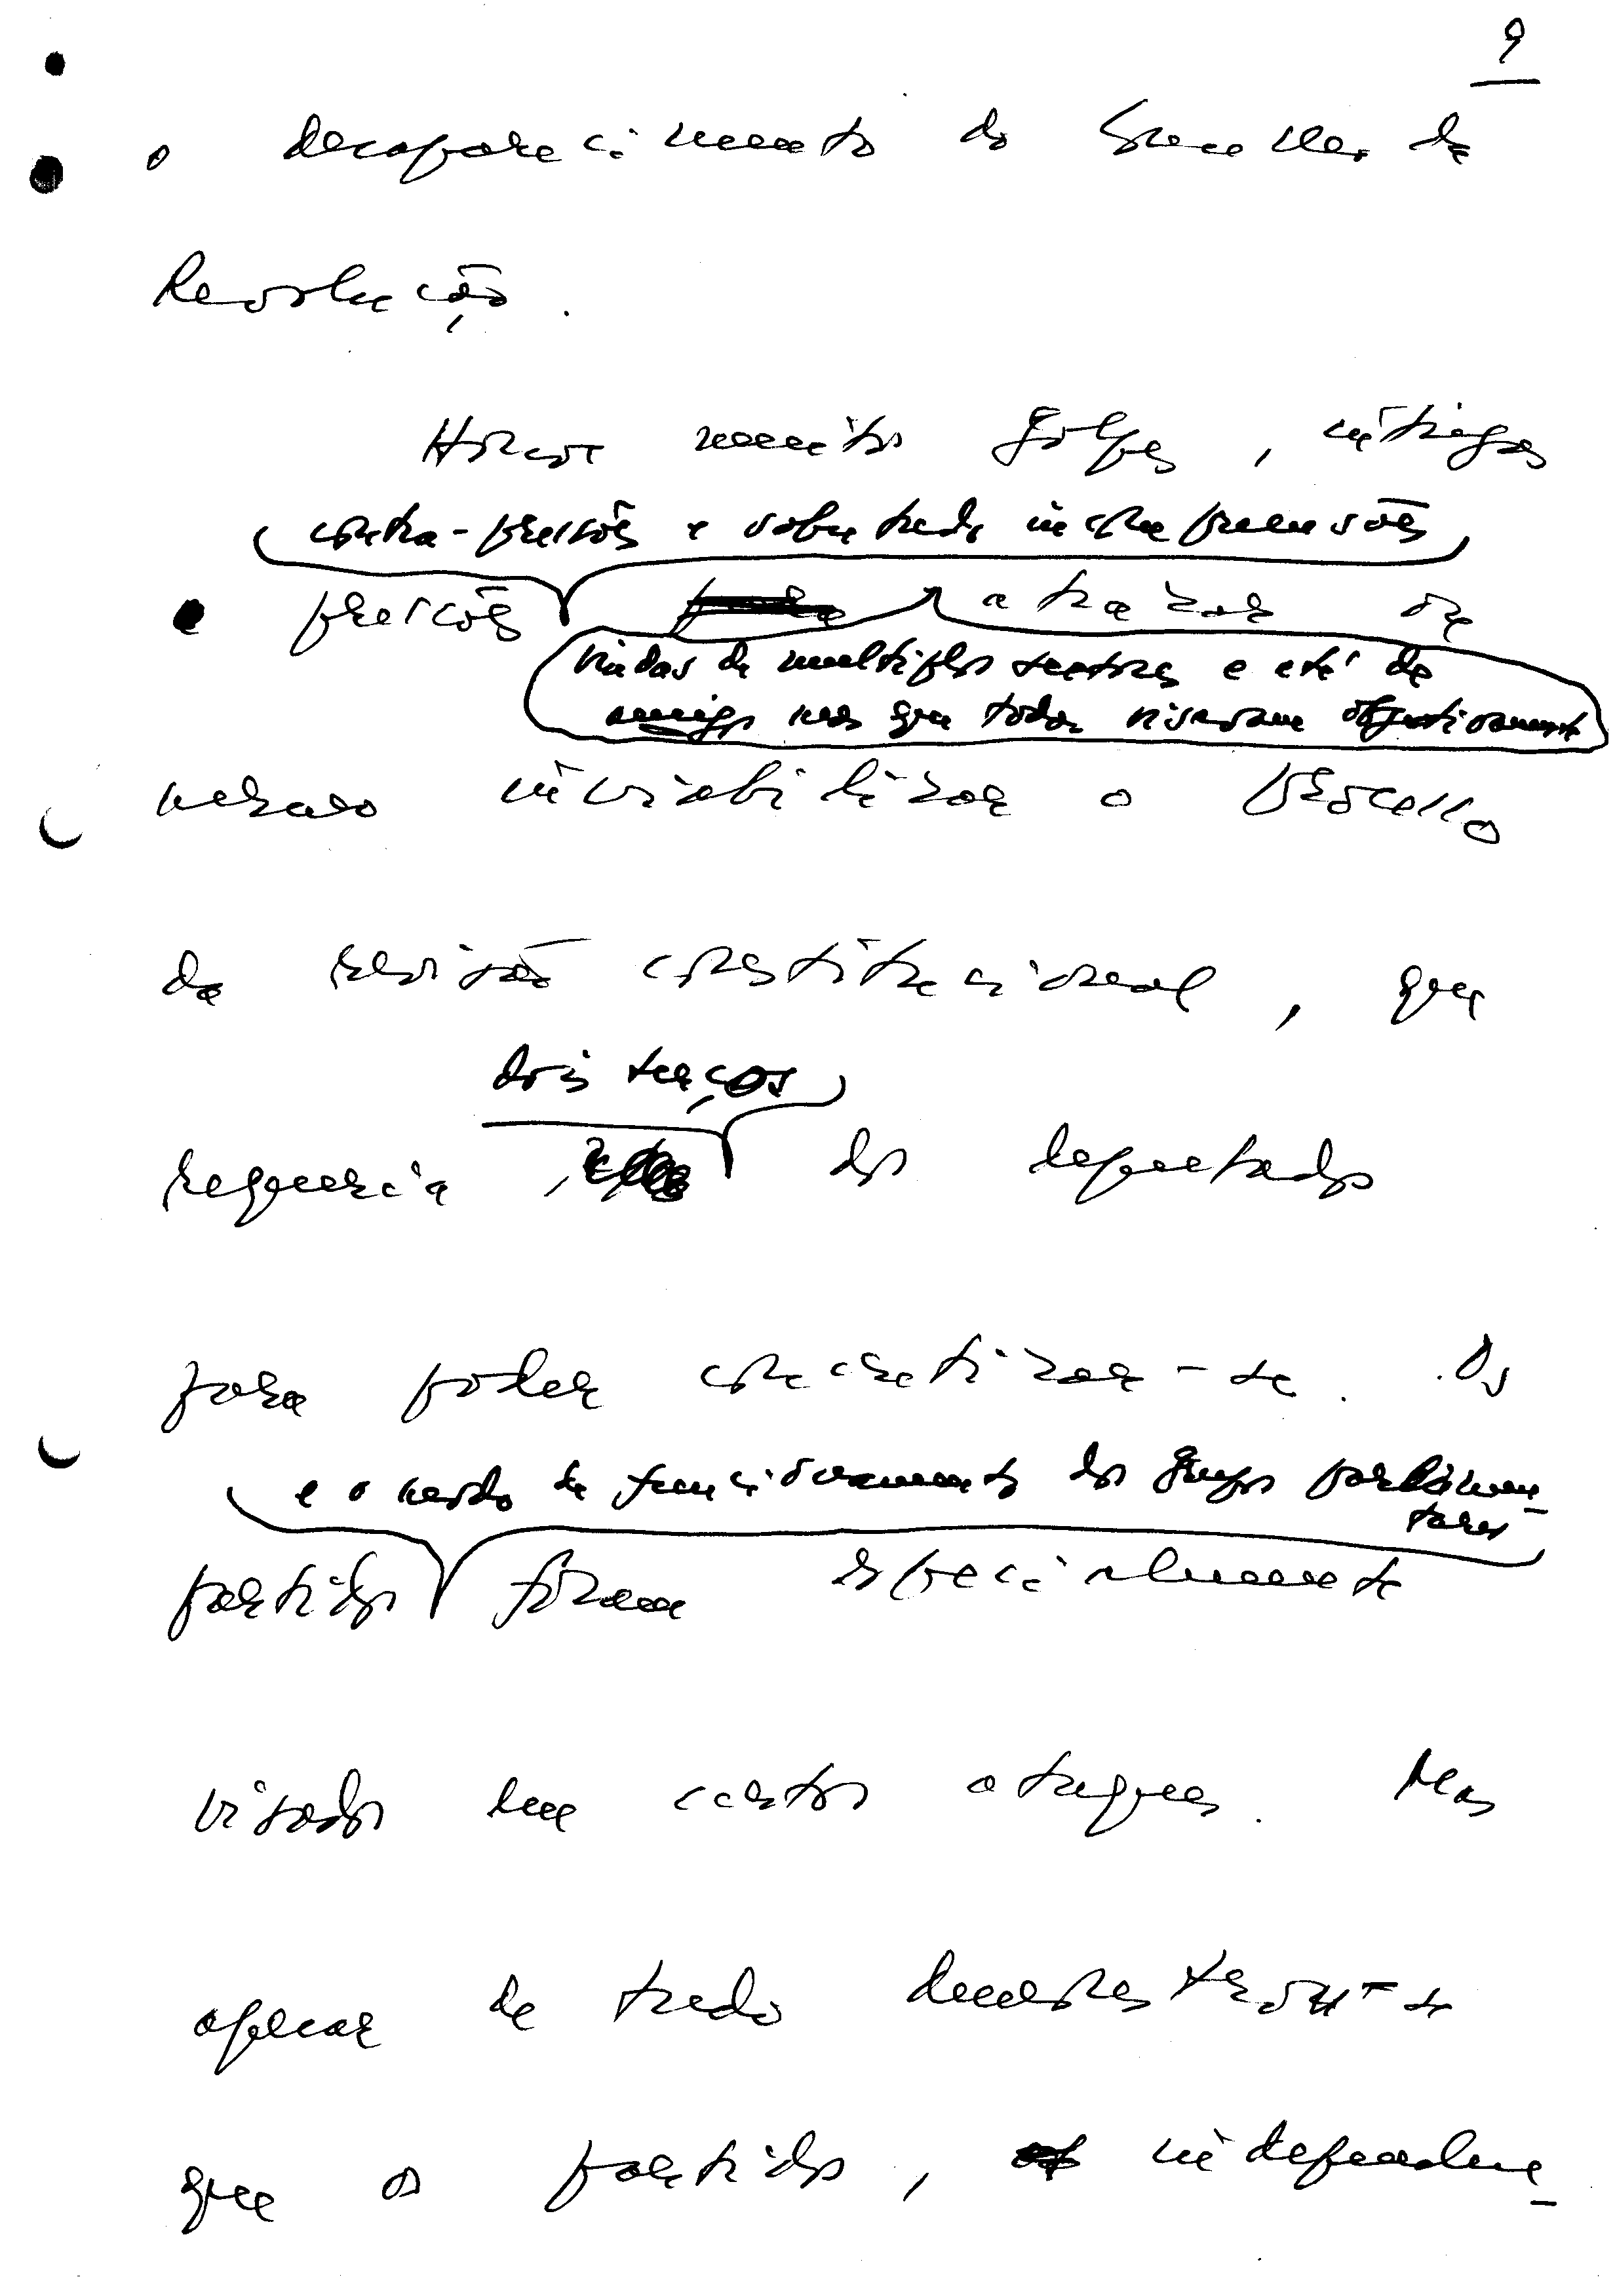 9
o desaparecimento do Conselho da
Revolução.
Houve muitos golpes, intrigas
contra-pressões e sobretudo incompreensões
pressões atrazar ou
vindas de multiplos sectores e até de
amigos mas que todos visavam objectivamente
mesmo inviabilizar o processo
da revisão constitucional, que
dois terços
requeria dos deputados
para poder concretizar-se. Os
e o modo de funcionamento dos grupos parlamen-
tares
partidos foram especialmente
visados em certos ataques. Mas
apesar de tudo demonstrou-se
que os partidos, independen-